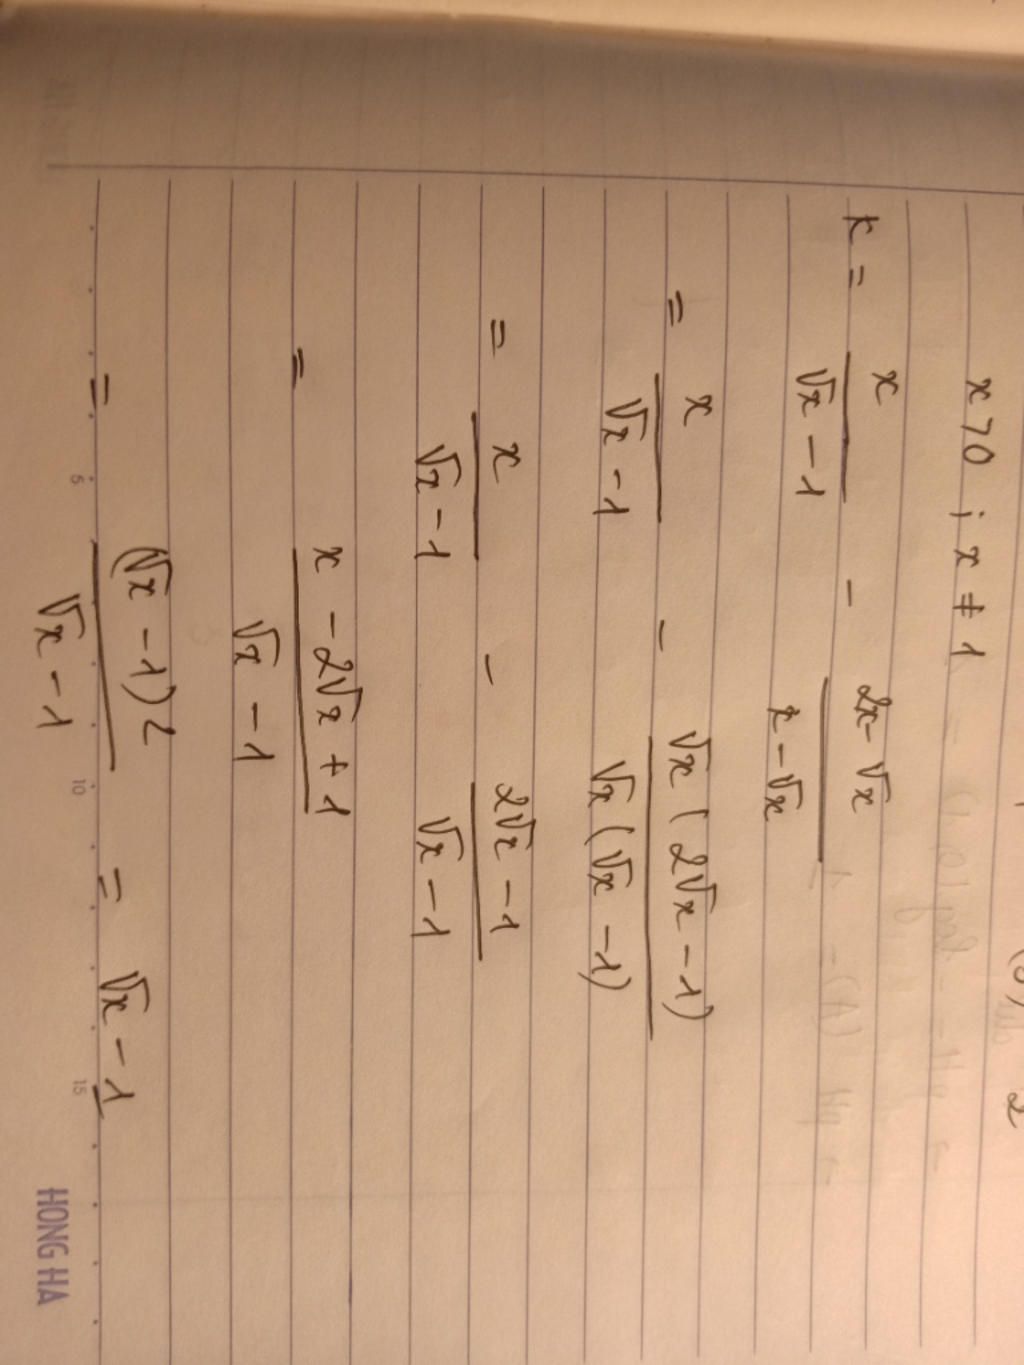 x > 0 ; x ≠ 1
K = x / (√x - 1) - (2x - √x) / (x - √x)
= x / (√x - 1) - √x (2√x - 1) / √x (√x - 1)
= x / (√x - 1) - (2√x - 1) / (√x - 1)
= (x - 2√x + 1) / (√x - 1)
= (√x - 1)² / (√x - 1) = √x - 1
5 10 15
HONG HA